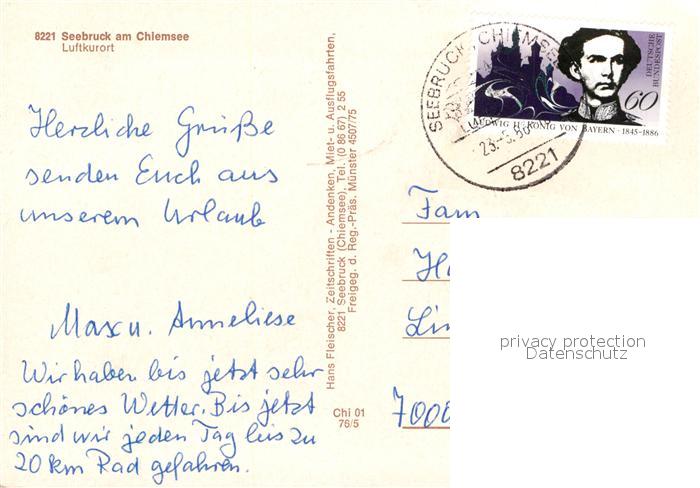 8221 Seebruck am Chiemsee
Luftkurort
Herzliche Grüße
senden Euch aus
unserem Urlaub
Max u. Anneliese
Wir haben bis jetzt sehr
schönes Wetter. Bis jetzt
sind wir jeden Tag bis zu
20 km Rad gefahren.
Hans Fleischer, Zeitschriften - Andenken, Miet- u. Ausflugsfahrten,
8221 Seebruck (Chiemsee), Tel. (0 86 67) 2 55
Freigeg. d. Reg.-Präs. Münster 4507/75
Chi 01
76/5
SEEBRUCK, CHIEMSEE
8221
DEUTSCHE
BUNDESPOST
60
LUDWIG II. KÖNIG VON BAYERN · 1845-1886
Fam
7000
privacy protection
Datenschutz